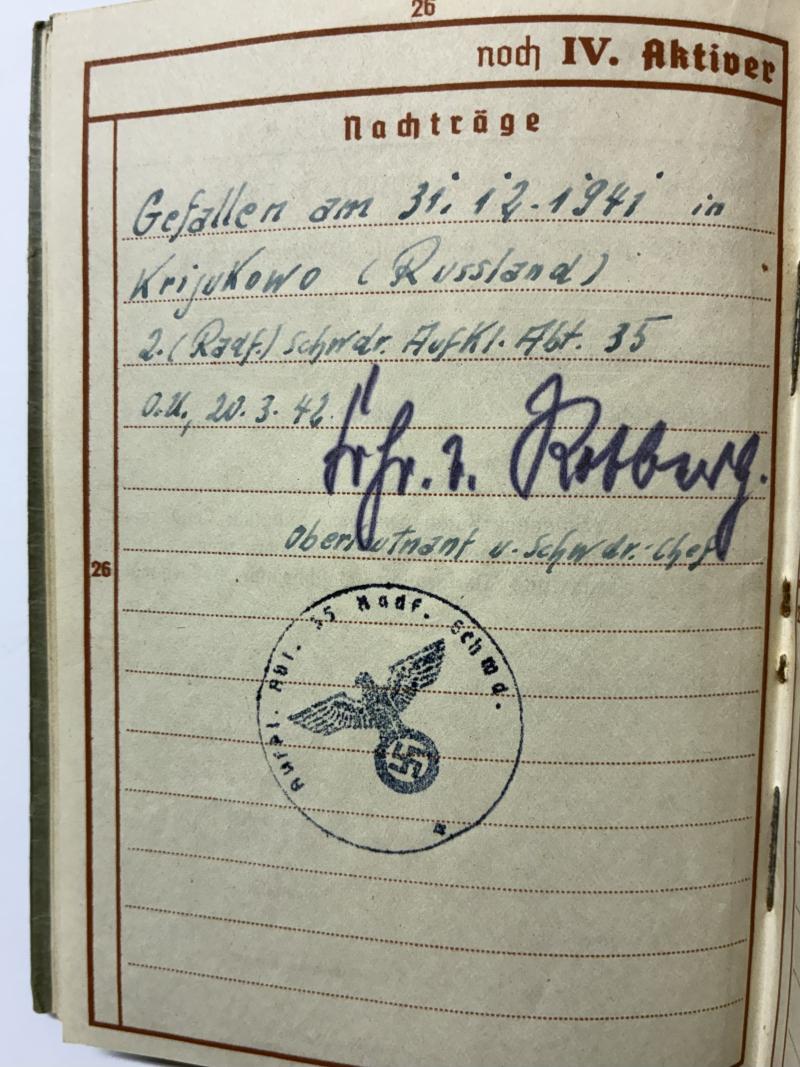 26
noch IV. Aktiver
Nachträge
Gefallen am 31.12.1941 in
Krijukowo (Russland)
2.(Radf.) Schwdr. Aufkl. Abt. 35
O.U., 20.3.42.
Frhr. v. Rotberg.
Oberleutnant u. Schwdr.-Chef
26
Aufkl. Abt. 35 Radf. Schwd.